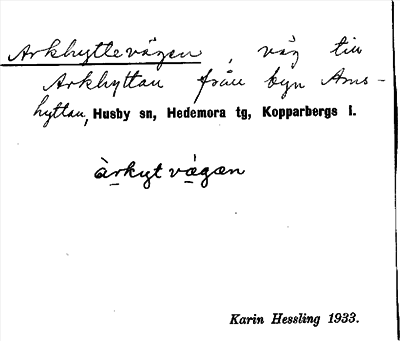 Arkhyttevägen, väg till
Arkhyttan från byn Ams-
hyttan, Husby sn, Hedemora tg, Kopparbergs l.
àrkyt vǻgæn
Karin Hessling 1933.